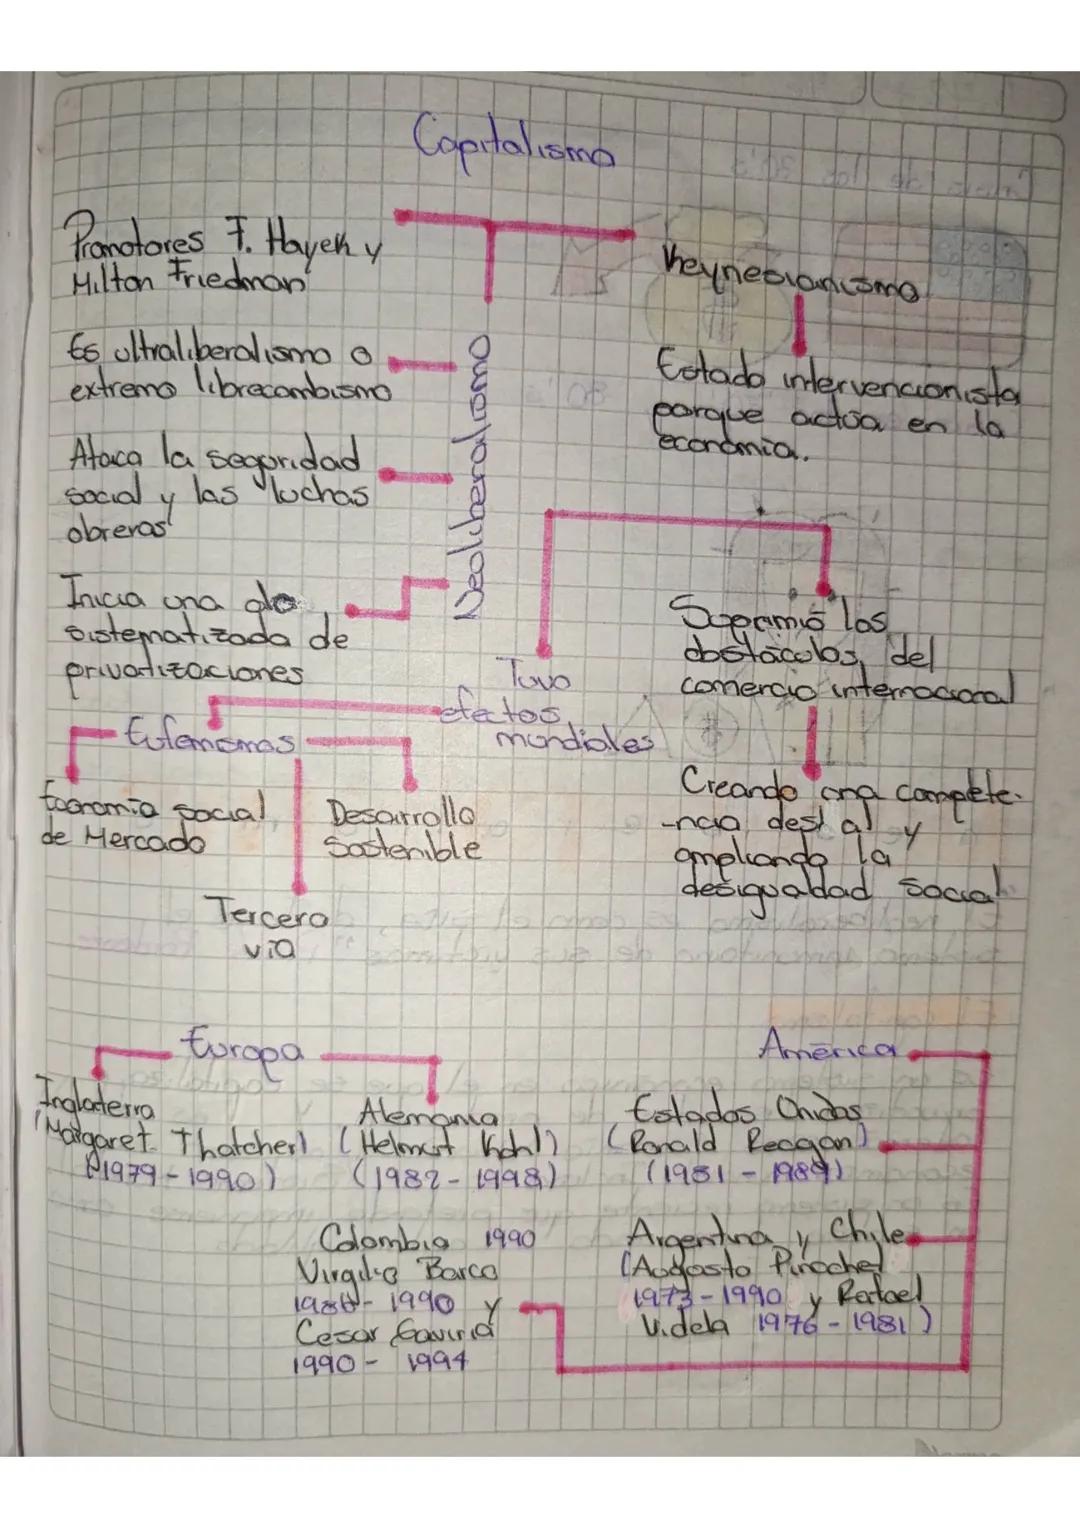 Capitalismo
Promotores F. Hayek y
Milton Friedman
Keynesianismo
Es ultraliberalismo o
extremo librecambismo
Neoliberalismo
Estado intervencionista
porque actúa en la
economía.
Ataca la seguridad
social y las luchas
obreras
Inicia una ola
sistematizada de
privatizaciones
Suprimió los
obstáculos del
comercio internacional
Tuvo
efectos
mundiales
Eufemismos
Creando una compete-
-ncia desl al y
ampliando la
desigualdad social
Economía social
de Mercado
Desarrollo
Sostenible
Tercera
vía
Europa
América
Inglaterra
(Margaret Thatcher)
(1979-1990)
Alemania
(Helmut Kohl)
(1982-1998)
Estados Unidos
(Ronald Reagan)
(1981-1989)
Colombia 1990
Virgilio Barco
1986-1990 y
Cesar Gaviria
1990- 1994
Argentina y Chile
(Augosto Pinochet
1973-1990 y Rafael
Videla 1976-1981)